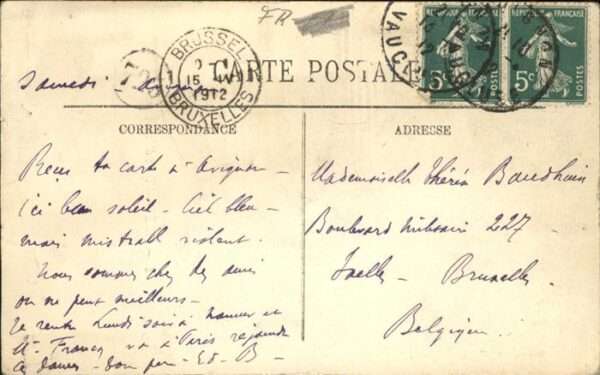 FR
BRUSSEL
15 IV
1912
BRUXELLES
CARTE POSTALE
RÉPUBLIQUE FRANÇAISE
5c
POSTES
RÉPUBLIQUE FRANÇAISE
5c
POSTES
VAUC
Samedi
CORRESPONDANCE
Reçu ta carte à Avignon -
ici beau soleil - Ciel bleu -
mais mistrall violent.
Nous sommes chez des amis
on ne peut meilleurs -
Je rentre Lundi soir à Namur et
M. Francq va à Paris rejoindre
ces dames - Ton père - Ed - B -
ADRESSE
Mademoiselle Thérèse Baudhuin
Boulevard militaire 227
Ixelles - Bruxelles
Belgique